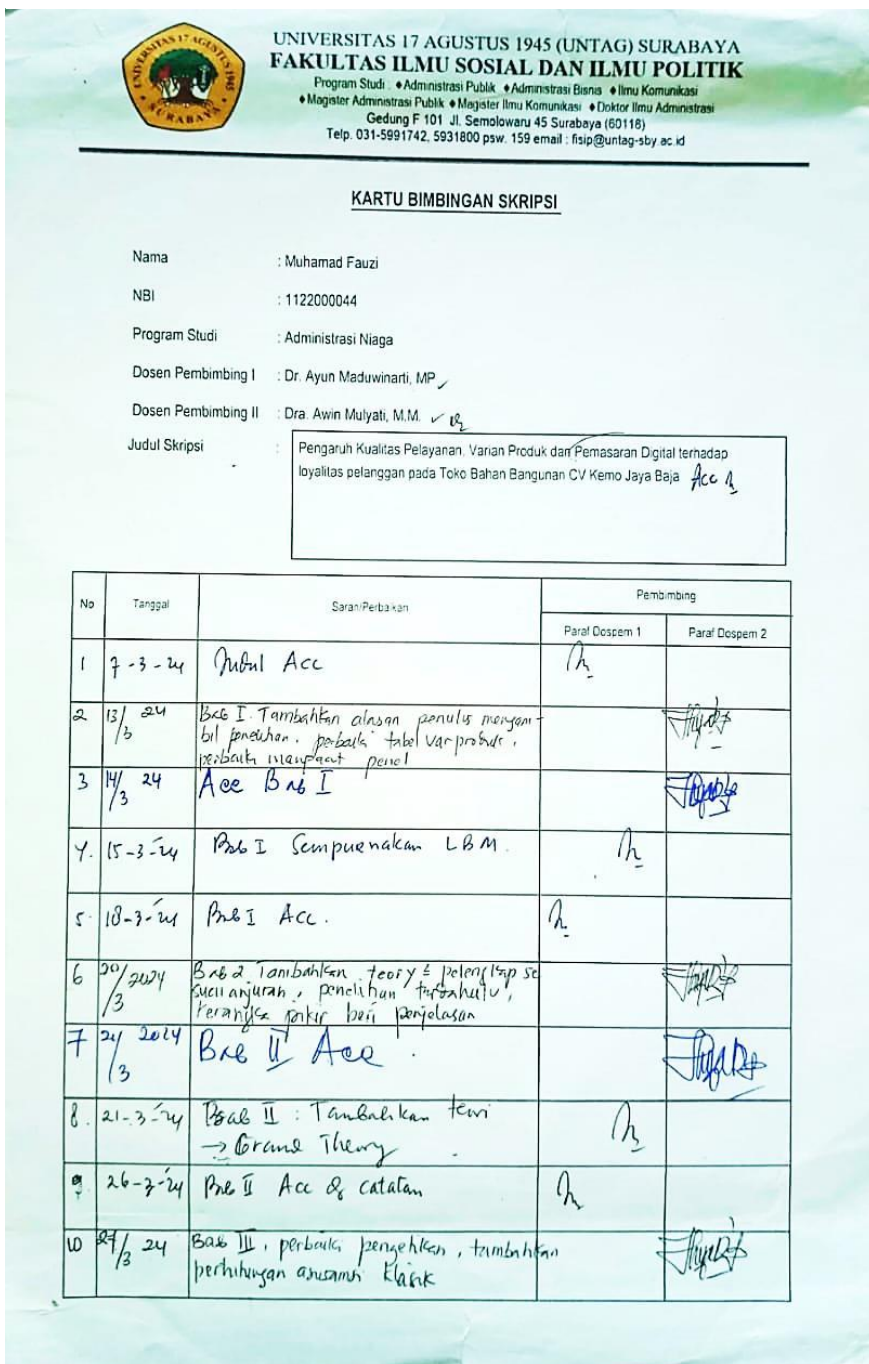 UNIVERSITAS 17 AGUSTUS 1945
SURABAYA
UNIVERSITAS 17 AGUSTUS 1945 (UNTAG) SURABAYA
FAKULTAS ILMU SOSIAL DAN ILMU POLITIK
Program Studi : ♦Administrasi Publik ♦Administrasi Bisnis ♦Ilmu Komunikasi
♦Magister Administrasi Publik ♦Magister Ilmu Komunikasi ♦Doktor Ilmu Administrasi
Gedung F 101 Jl. Semolowaru 45 Surabaya (60118)
Telp. 031-5991742, 5931800 psw. 159 email : fisip@untag-sby.ac.id
KARTU BIMBINGAN SKRIPSI
Nama : Muhamad Fauzi
NBI : 1122000044
Program Studi : Administrasi Niaga
Dosen Pembimbing I : Dr. Ayun Maduwinarti, MP
Dosen Pembimbing II : Dra. Awin Mulyati, M.M.
Judul Skripsi : Pengaruh Kualitas Pelayanan, Varian Produk dan Pemasaran Digital terhadap
loyalitas pelanggan pada Toko Bahan Bangunan CV Kemo Jaya Baja Acc
No Tanggal Saran/Perbaikan Pembimbing
Paraf Dospem 1 Paraf Dospem 2
1 7-3-24 Judul Acc
2 13/3 24 Bab I. Tambahkan alasan penulis mengam-
bil penelitian, perbaiki tabel var produk,
perbaiki manfaat penel
3 14/3 24 Acc Bab I
4. 15-3-24 Bab I Sempurnakan LBM.
5. 18-3-24 Bab I Acc.
6 20/3 2024 Bab 2 Tambahkan teory pelengkap se
suai anjuran, penelitian terdahulu,
kerangka pikir beri penjelasan
7 21/3 2024 Bab II Acc.
8. 21-3-24 Bab II : Tambahkan teori
→ Grand Theory
9. 26-3-24 Bab II Acc & catatan
10 27/3 24 Bab III, perbaiki, tambahkan
perhitungan asumsi klasik